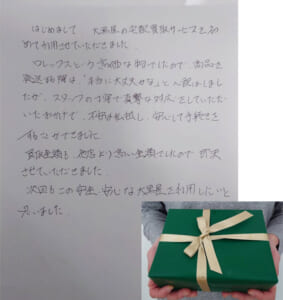 はじめまして 大黒屋の宅配買取サービスを初
めて利用させていただきました。
ロレックスという高価な物でしたので、商品を
発送する際は、「本当に大丈夫かな」と心配はしまし
たが、スタッフの丁寧で真摯な対応をしていただ
いたおかげで、不安は払拭し、安心して手続きを
行なうができました。
買取金額も、他店より高い金額でしたので即決
させていただきました。
次回もこの安全、安心な大黒屋を利用したいと
思いました。